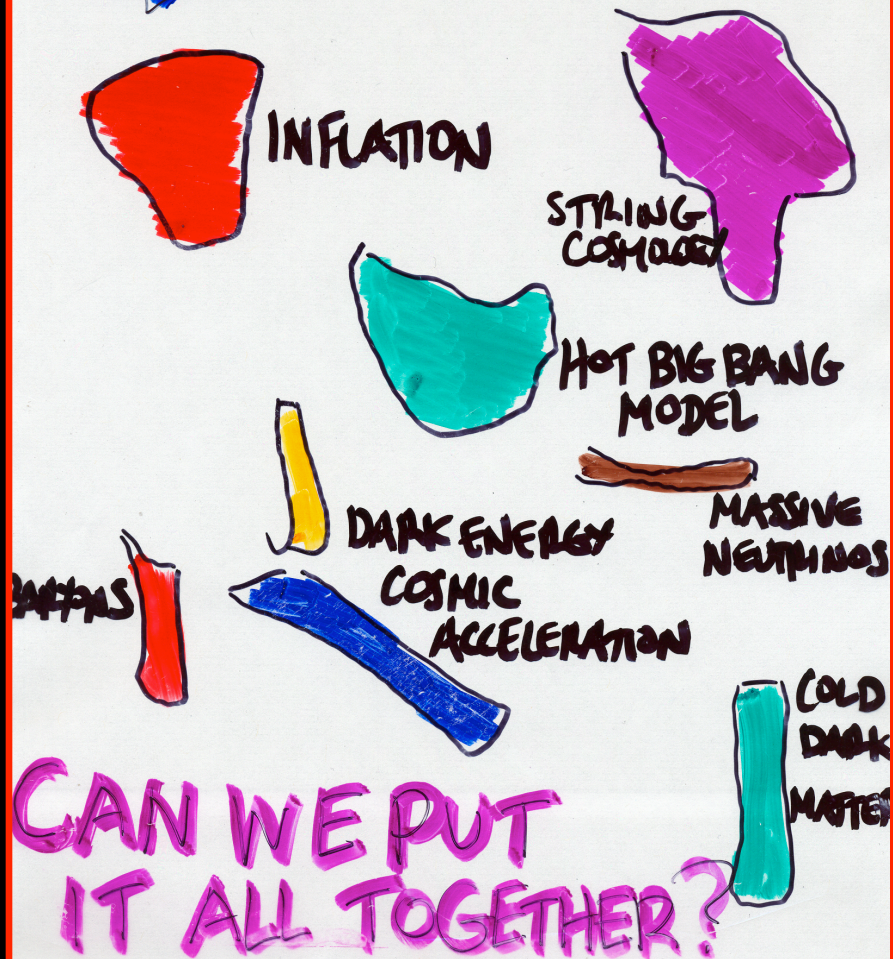 INFLATION
STRING
COSMOLOGY
HOT BIG BANG
MODEL
MASSIVE
NEUTRINOS
DARK ENERGY
COSMIC
ACCELERATION
BARYONS
COLD
DARK
MATTER
CAN WE PUT
IT ALL TOGETHER?